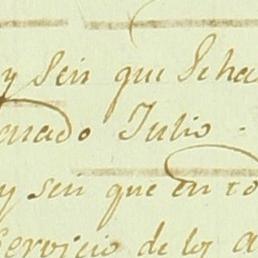 y Seis que Seha
Julio.
y seis que en to
servicio de los a